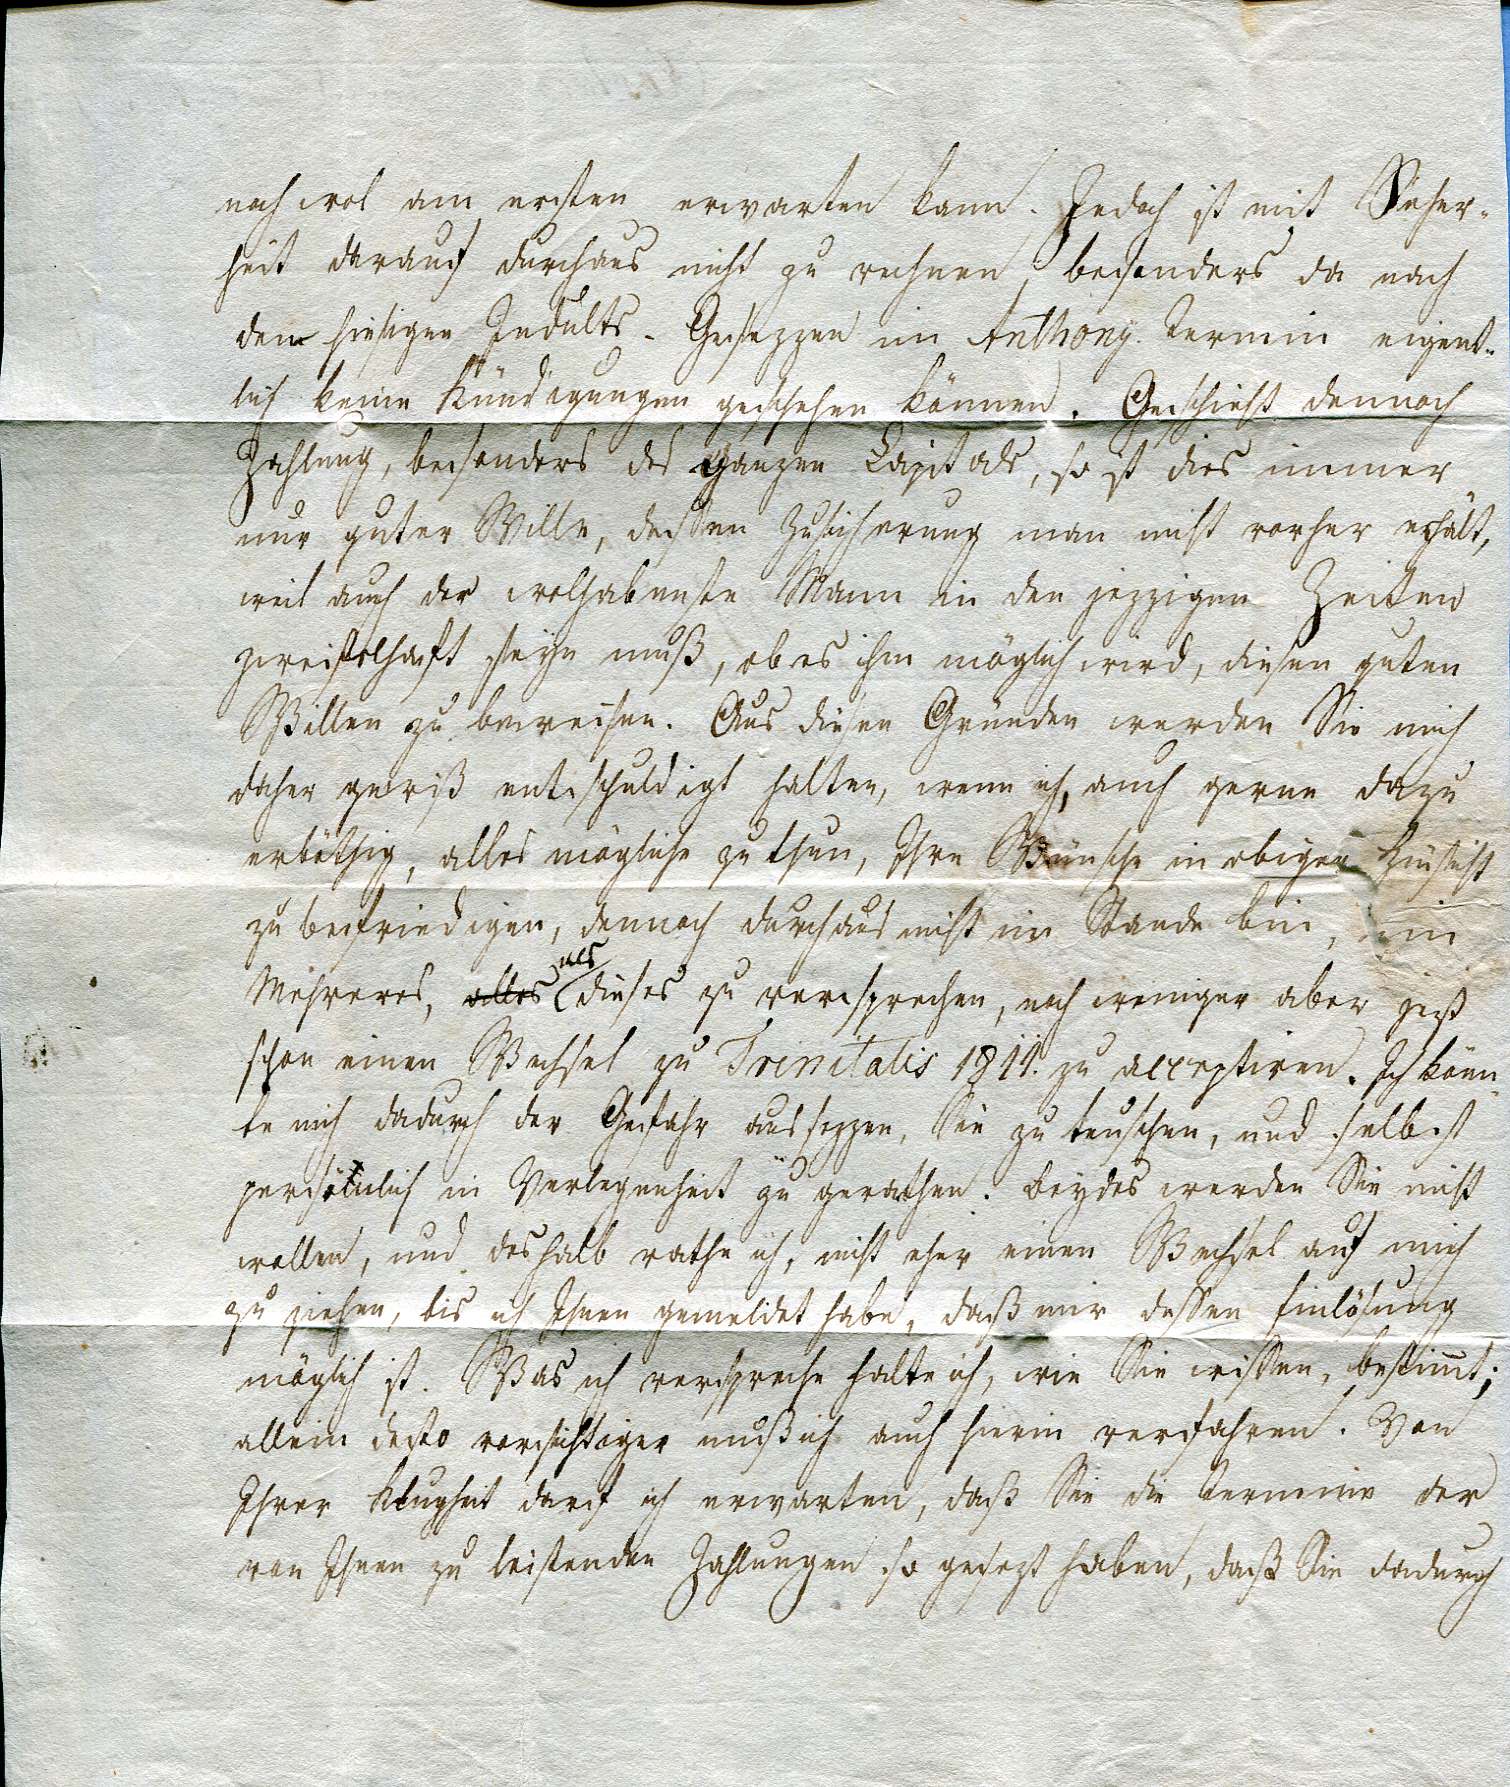 noch wol am ersten erwarten kann. Jedoch ist mit Sicher-
heit darauf durchaus nicht zu rechnen, besonders da nach
den hiesigen Indults-Gesezzen im Anthony. Termin eigent-
lich keine Kündigungen geschehen können. Geschieht dennoch
Zahlung, besonders des ganzen Capitals, so ist dies immer
nur guter Wille, dessen Zusicherung man nicht vorher erhält,
weil auch der wolhabenste Mann in den jezzigen Zeiten
zweifelhaft seyn muß, ob es ihm möglich wird, diesen guten
Willen zu beweisen. Aus diesen Gründen werden Sie mich
daher gewiß entschuldigt halten, wenn ich, auch gerne dazu
erböthig, alles mögliche zu thun, Ihre Wünsche in obiger Hinsicht
zu befriedigen, dennoch durchaus nicht im Stande bin, ein
Mehreres, alles als dieses zu versprechen, noch weniger aber jezt
schon einen Wechsel zu Trinitatis 1811. zu acceptiren. Ich könn
te mich dadurch der Gefahr aussezzen, Sie zu teuschen, und selbst
persönlich in Verlegenheit zu gerathen. Beydes werden Sie nicht
wollen, und deshalb rathe ich, nicht eher einen Wechsel auf mich
zu ziehen, bis ich Ihnen gemeldet habe, daß mir dessen Einlösung
möglich ist. Was ich verspreche halte ich, wie Sie wissen, bestimmt;
allein desto vorsichtiger muß ich auch hierin verfahren. Von
Ihrer Klugheit darf ich erwarten, daß Sie die Termine der
von Ihnen zu leistenden Zahlungen so gesezt haben, daß Sie dadurch